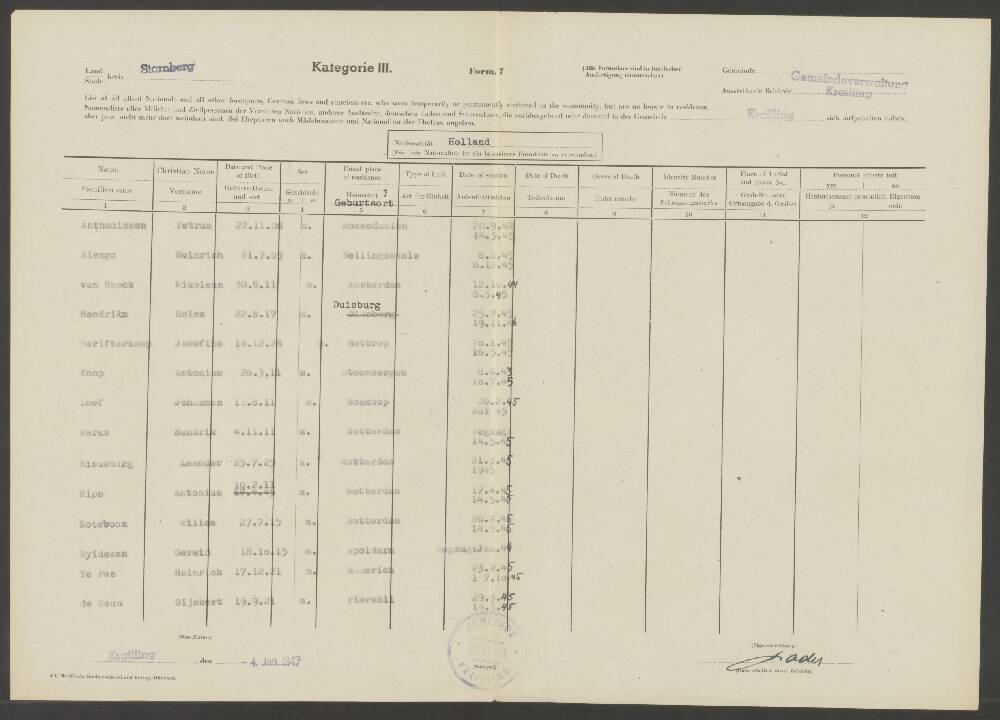 Land-
Stadt- kreis Starnberg
Kategorie III.
Form. 7
(Alle Formulare sind in fünffacher
Ausfertigung einzureichen)
Gemeinde
Ausstellende Behörde
Gemeindeverwaltung
Krailling
List of all allied Nationals and all other foreigners, German Jews and stateless etc. who were temporarily or permanently stationed in the community, but are no longer in residence.
Namensliste aller Militär- und Zivilpersonen der Vereinten Nationen, anderer Ausländer, deutschen Juden und Staatenloser, die vorübergehend oder dauernd in der Gemeinde Krailling sich aufgehalten haben,
aber jetzt nicht mehr dort wohnhaft sind. Bei Ehepaaren auch Mädchenname und Nationalität der Ehefrau angeben.
Nationalität Holland
(Für jede Nationalität ist ein besonderes Formblatt zu verwenden.)
Name Christian Name Date and Place of Birth Sex Usual place of residence Type of Unit Date of sojourn Date of Death Cause of Death Identity Number Place of burial and grave No. Personal effects left yes | no
Familienname Vorname Geburts-Datum und -ort Geschlecht Heimatort ? Geburtsort Art der Einheit Aufenthaltsdaten Todesdatum Todesursache Nummer der Erkennungsmarke Grab-No. oder Ortsangabe d. Grabes Hinterlassenes persönlich. Eigentum ja nein
1 2 3 4 5 6 7 8 9 10 11 12
Anthonissen Petrus 22.11.06 m. 20.9.42
14.5.45
Klengo Heinrich 21.7.05 m. 8.6.45
8.12.45
van Hoock Nikolaus 30.6.11 m. Amsterdam 12.10.44
8.5.45
Duisburg
Hendriks Heinz 22.8.17 m. 25.7.45
19.11.46
Josefine 10.12.26 Bottrop 20.1.45
16.5.45
Knop Antonius 26.3.11 m. Steenbergen 8.6.43
10.7.45
Loef Johannes m. Boskoop 20.2.45
mai 45
Hendrik 4.11.11 m. Rotterdam Wegzug
14.5.45
Leander 25.7.23 m. Rotterdam 21.3.45
1945
10.2.11
Rips Antonius m. Rotterdam 17.4.45
14.5.45
Koteboom Willem 27.7.15 m. Rotterdam 20.2.45
14.5.45
Nyideken Gereid 18.10.15 m. Apoldarn Wegzug: Jan. 44
Te Pas Heinrich 17.12.21 m. 23.2.45
1 7.10.45
Gijsbert 19.9.21 m. Piershil 29.3.45
14.5.45
GEMEINDE
KRAILLING
(Ort, Datum)
Krailling , den - 4. Jan. 1947
(Stempel)
(Signature, Stamp)